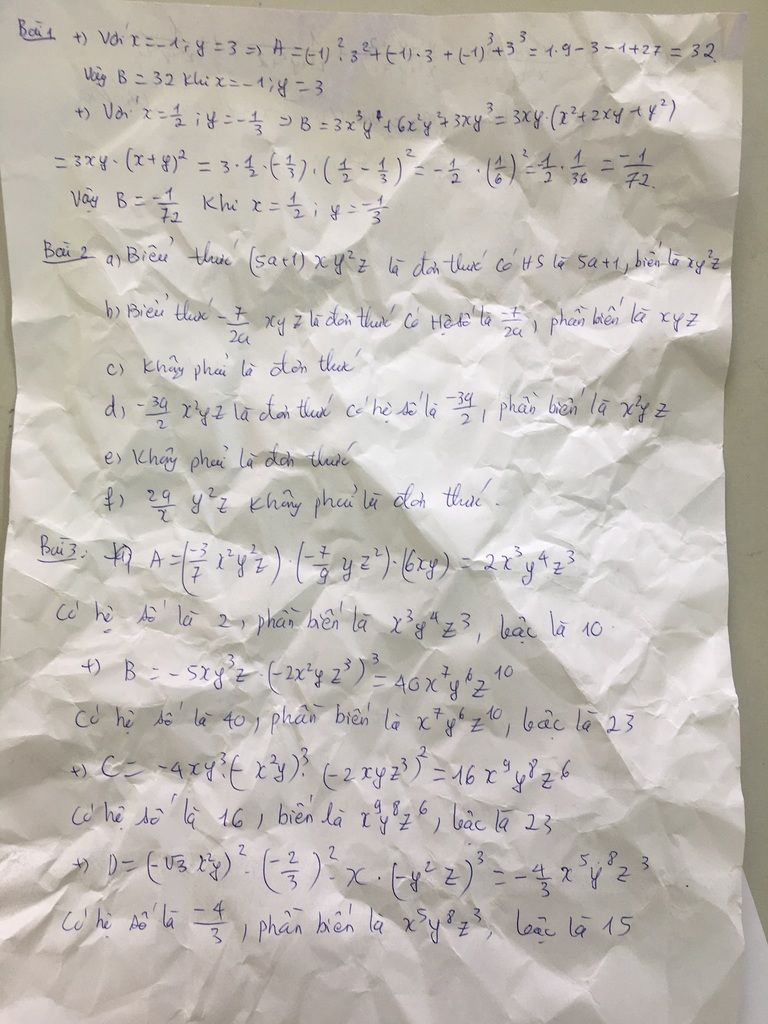 Bài 1 +) Với x=-1; y=3 => A=(-1)².3²+(-1).3+(-1)³+3³=1.9-3-1+27=32
Vậy B=32 khi x=-1; y=3
+) Với x=1/2; y=-1/3 => B=3x³y+6x²y²+3xy³=3xy.(x²+2xy+y²)
=3xy.(x+y)²=3.1/2.(-1/3).(1/2-1/3)²=-1/2.(1/6)²=-1/2.1/36=-1/72.
Vậy B=-1/72 khi x=1/2; y=-1/3
Bài 2 a) Biểu thức (5a+1)xy²z là đơn thức có HS là 5a+1, biến là xy²z
b) Biểu thức -7/2a xyz là đơn thức có Hệ số là -7/2a, phần biến là xyz
c) Không phải là đơn thức
d) -3a/2 x²yz là đơn thức có hệ số là -3a/2, phần biến là x²yz
e) Không phải là đơn thức
f) 2a/x y²z không phải là đơn thức.
Bài 3: A=(-3/7 x²y²z).(-7/9 yz²).(6xy)=2x³y⁴z³
Có hệ số là 2, phần biến là x³y⁴z³, bậc là 10
+) B=-5xy³z.(-2x²yz³)³=40x⁷y⁶z¹⁰
Có hệ số là 40, phần biến là x⁷y⁶z¹⁰, bậc là 23
+) C=-4xy³.(-x²y)³.(-2xyz³)²=16x⁹y⁸z⁶
Có hệ số là 16, biến là x⁹y⁸z⁶, bậc là 23
+) D=(-√3x²y)².(-2/3)².x.(-y²z)³=-4/3x⁵y⁸z³
Có hệ số là -4/3, phần biến là x⁵y⁸z³, bậc là 15